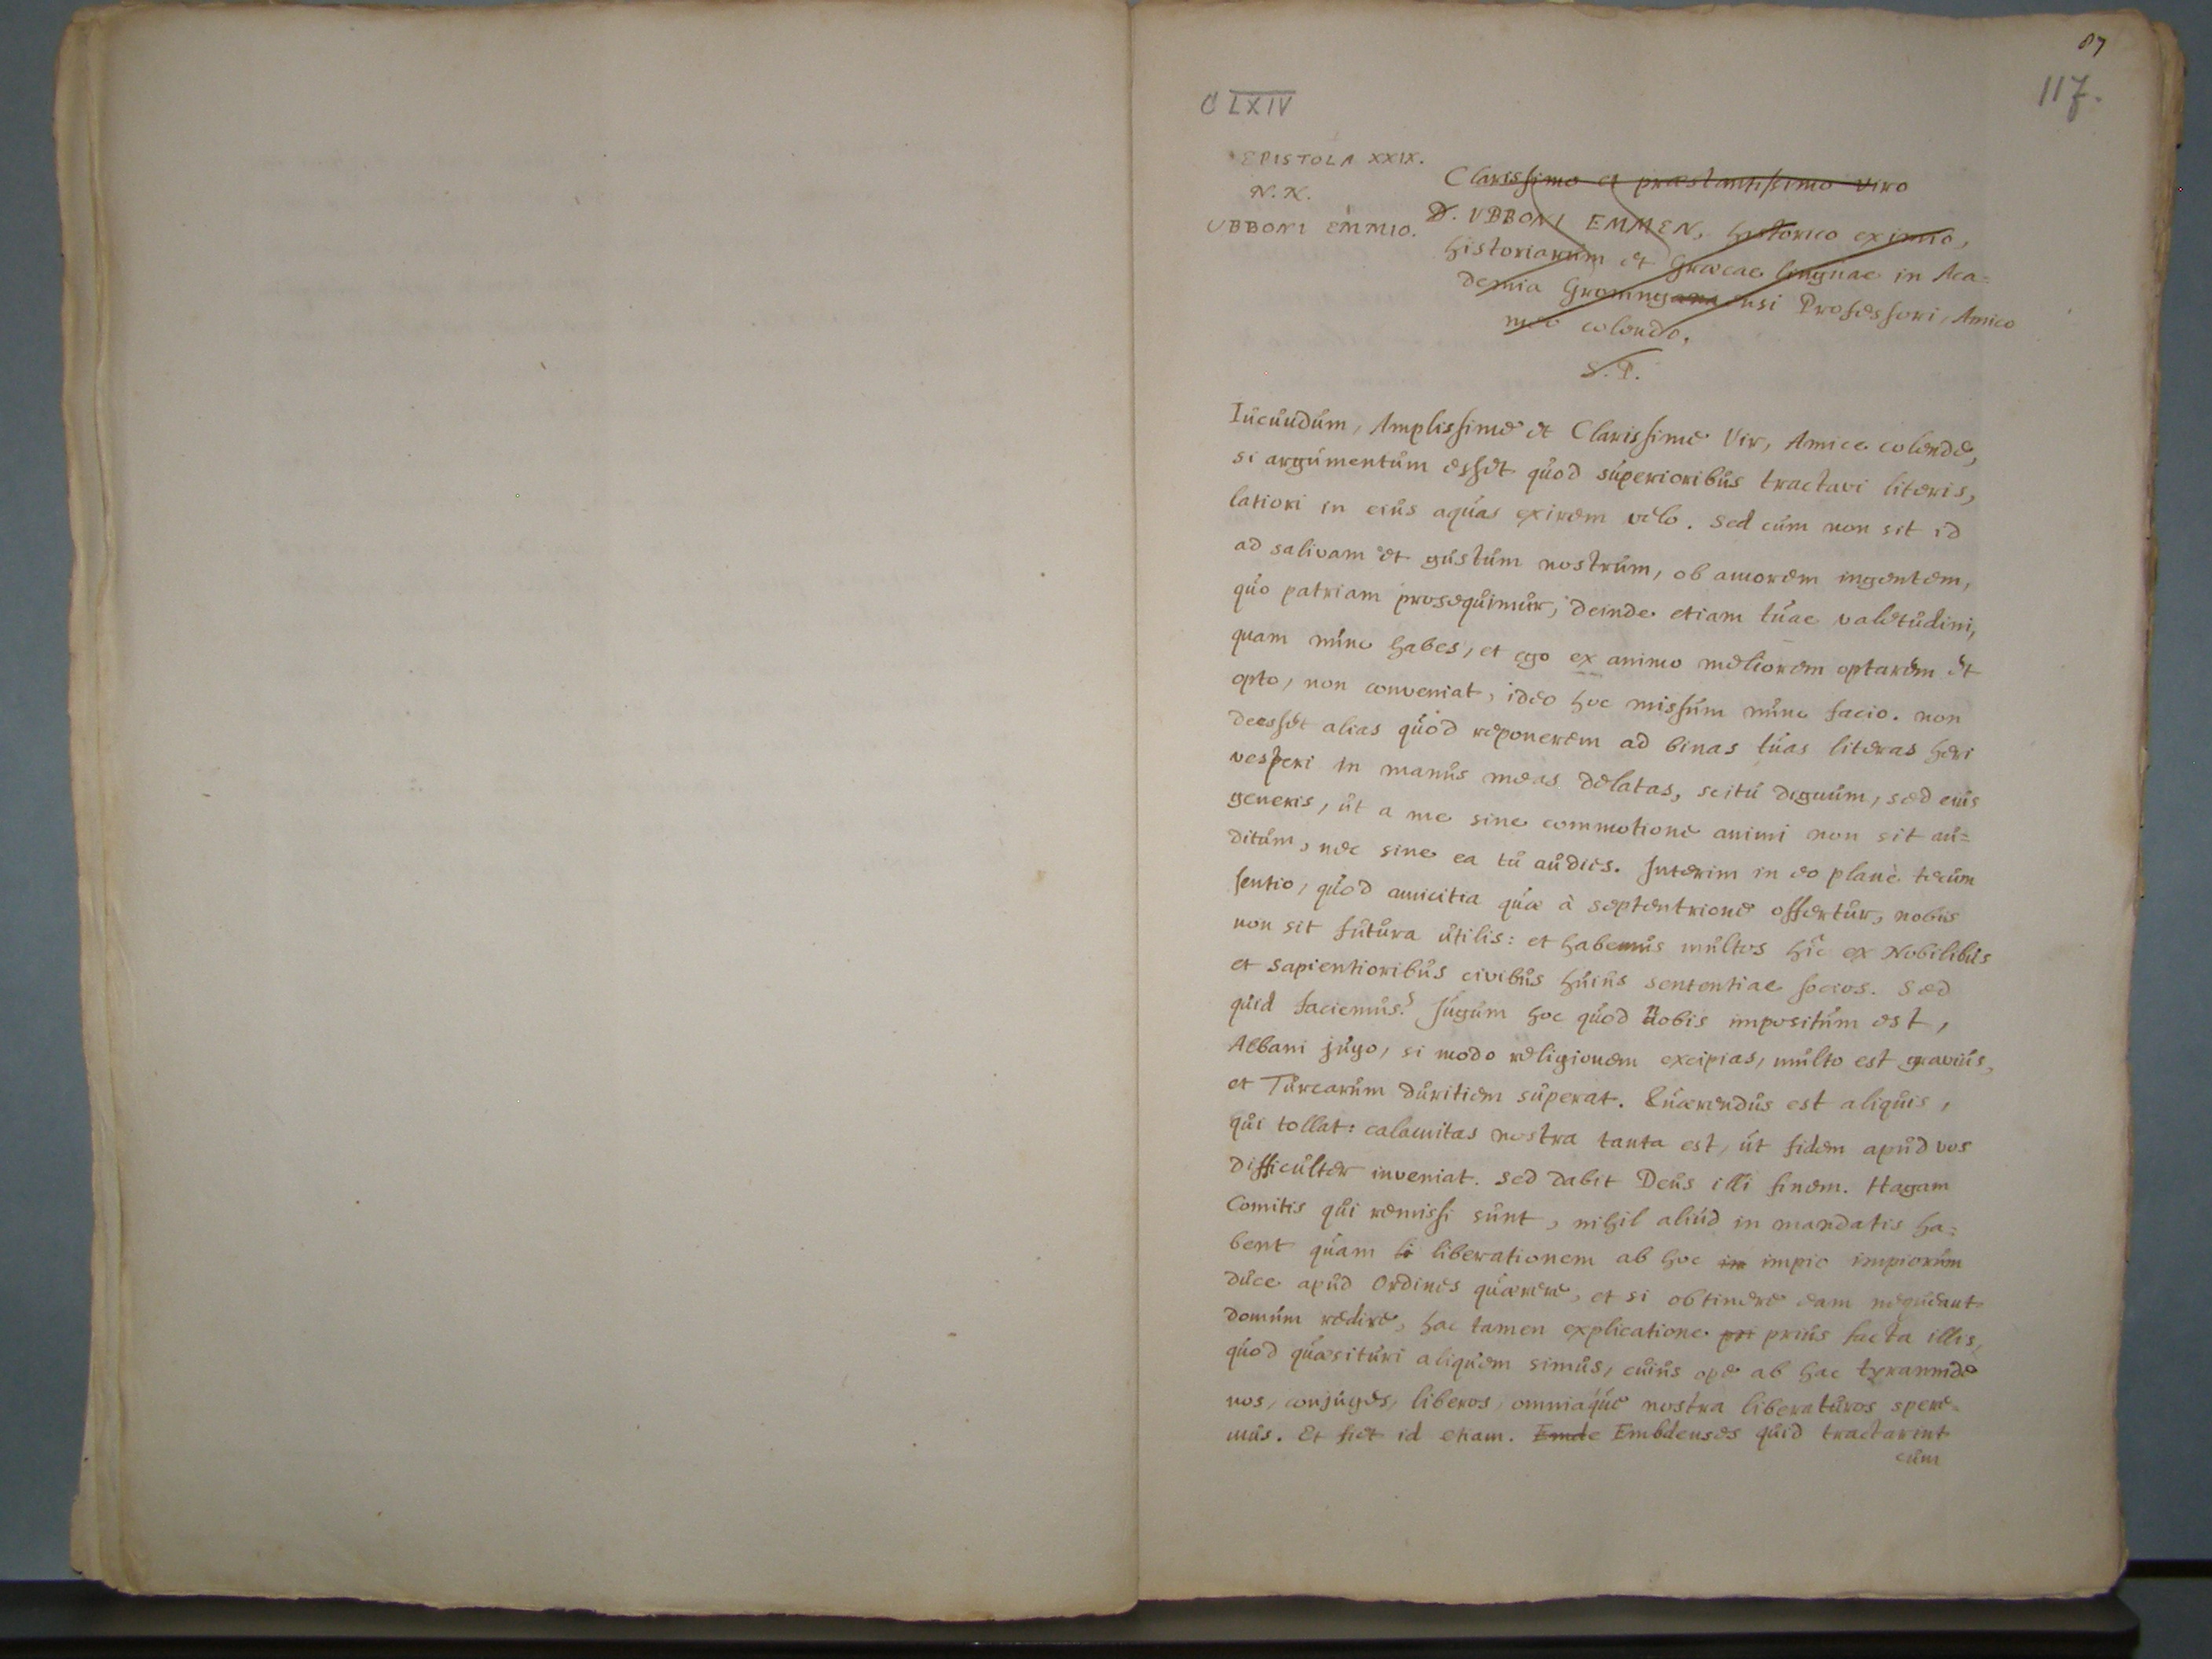 87
117.
C LXIV
EPISTOLA XXIX.
N. N.
UBBONI EMMIO.
Clarissimo et præstantissimo viro
D. UBBONI EMMEN, historico eximio,
historiarum et Græcae linguae in Aca=
demia Groningana ensi Professori, Amico
meo colendo,
S. P.
Iucundum, Amplissime et Clarissime Vir, Amice colende,
si argumentum esset quod superioribus tractavi literis,
latiori in eius aquas exirem velo. Sed cum non sit id
ad salivam et gustum nostrum, ob amorem ingentem,
quo patriam prosequimur; deinde etiam tuae valetudini,
quam nunc habes, et ego ex animo meliorem optarem et
opto, non conveniat, ideo hoc missum nunc facio. non
deesset alias quod reponerem ad binas tuas literas heri
vesperi in manus meas delatas, scitu dignum, sed eius
generis, ut a me sine commotione animi non sit au=
ditum, nec sine ea tu audies. Interim in eo planè tecum
sentio, quod amicitia quæ à septentrione offertur, nobis
non sit futura utilis: et habemus multos hîc ex Nobilibus
et sapientioribus civibus huius sententiae socios. Sed
quid faciemus? Jugum hoc quod nobis impositum est,
Albani jugo, si modo religionem excipias, multo est gravius,
et Turcarum duritiem superat. Quærendus est aliquis,
qui tollat: calamitas nostra tanta est, ut fidem apud vos
difficulter inveniat. Sed dabit Deus illi finem. Hagam
Comitis qui remissi sunt, nihil aliud in mandatis ha=
bent quam li liberationem ab hoc im impio impiorum
duce apud Ordines quærere, et si obtinere eam nequeant
domum redire, hac tamen explicatione pri prius facta illis,
quod quæsituri aliquem simus, cuius ope ab hac tyrannide
nos, conjuges, liberos, omniaque nostra liberaturos spere=
mus. Et fiet id etiam. Emde Embdenses quid tractarint
cum